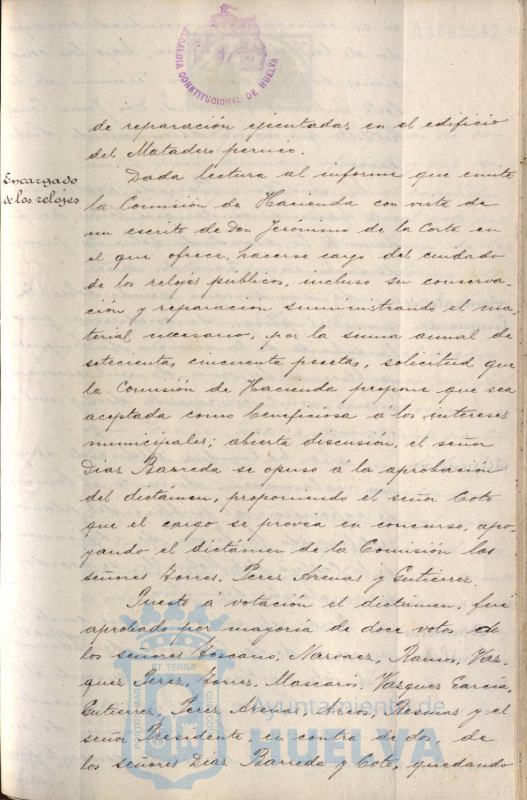 ALCALDIA CONSTITUCIONAL DE HUELVA
de reparación ejecutadas en el edificio
del Matadero
Encargado
de los relojes
Dada lectura al informe que emite
la Comisión de Hacienda con vista de
un escrito de Don Jerónimo de la Corte en
el que ofrece hacerse cargo del cuidado
de los relojes públicos, incluso su conserva-
ción y reparación suministrando el ma-
terial necesario, por la suma anual de
setecientas cincuenta pesetas, solicitud que
la Comisión de Hacienda propone que sea
aceptada como beneficiosa a los intereses
municipales; abierta discusión, el señor
Diaz Barreda se opuso á la aprobación
del dictámen, proponiendo el señor Coto
que el cargo se provea en concurso, apo-
yando el dictámen de la Comisión los
señores Torres, Perez Arenas y Gutierrez.
Puesto á votación el dictámen, fué
aprobado por mayoría de doce votos de
los señores Toscano, Narvaez, Ramos, Vaz-
quez Perez, Torres, Mascarós, Vazquez García,
Gutierrez, Perez Arenas, y el
señor Presidente en contra de dos, de
los señores Diaz Barreda y Coto, quedando
PORTUS MARIS ET TERRAE CUSTODIA
Ayuntamiento de
HUELVA